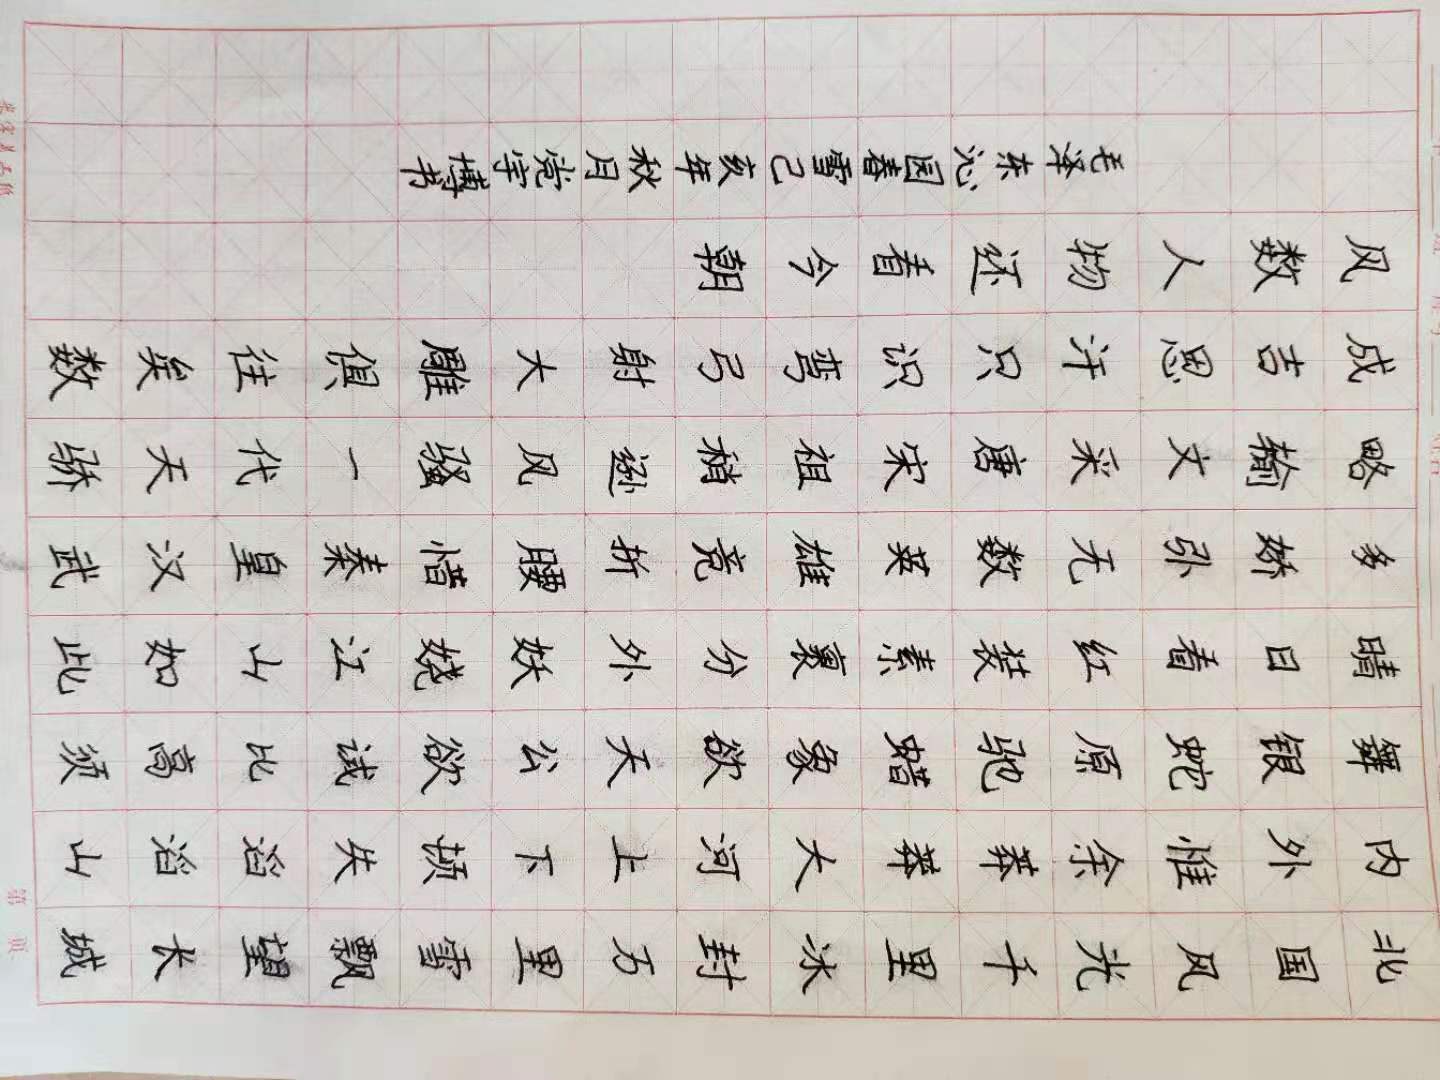 北国风光千里冰封万里雪飘望长城
内外惟余莽莽大河上下顿失滔滔山
舞银蛇原驰蜡象欲天公欲试比高须
晴日看红装素裹分外妖娆江山如此
多娇引无数英雄竞折腰惜秦皇汉武
略输文采唐宋祖稍逊风骚一代天骄
成吉思汗只识弯弓射大雕俱往矣数
风数人物还看今朝
毛泽东沁园春雪己亥年秋月党宇博书
第 页